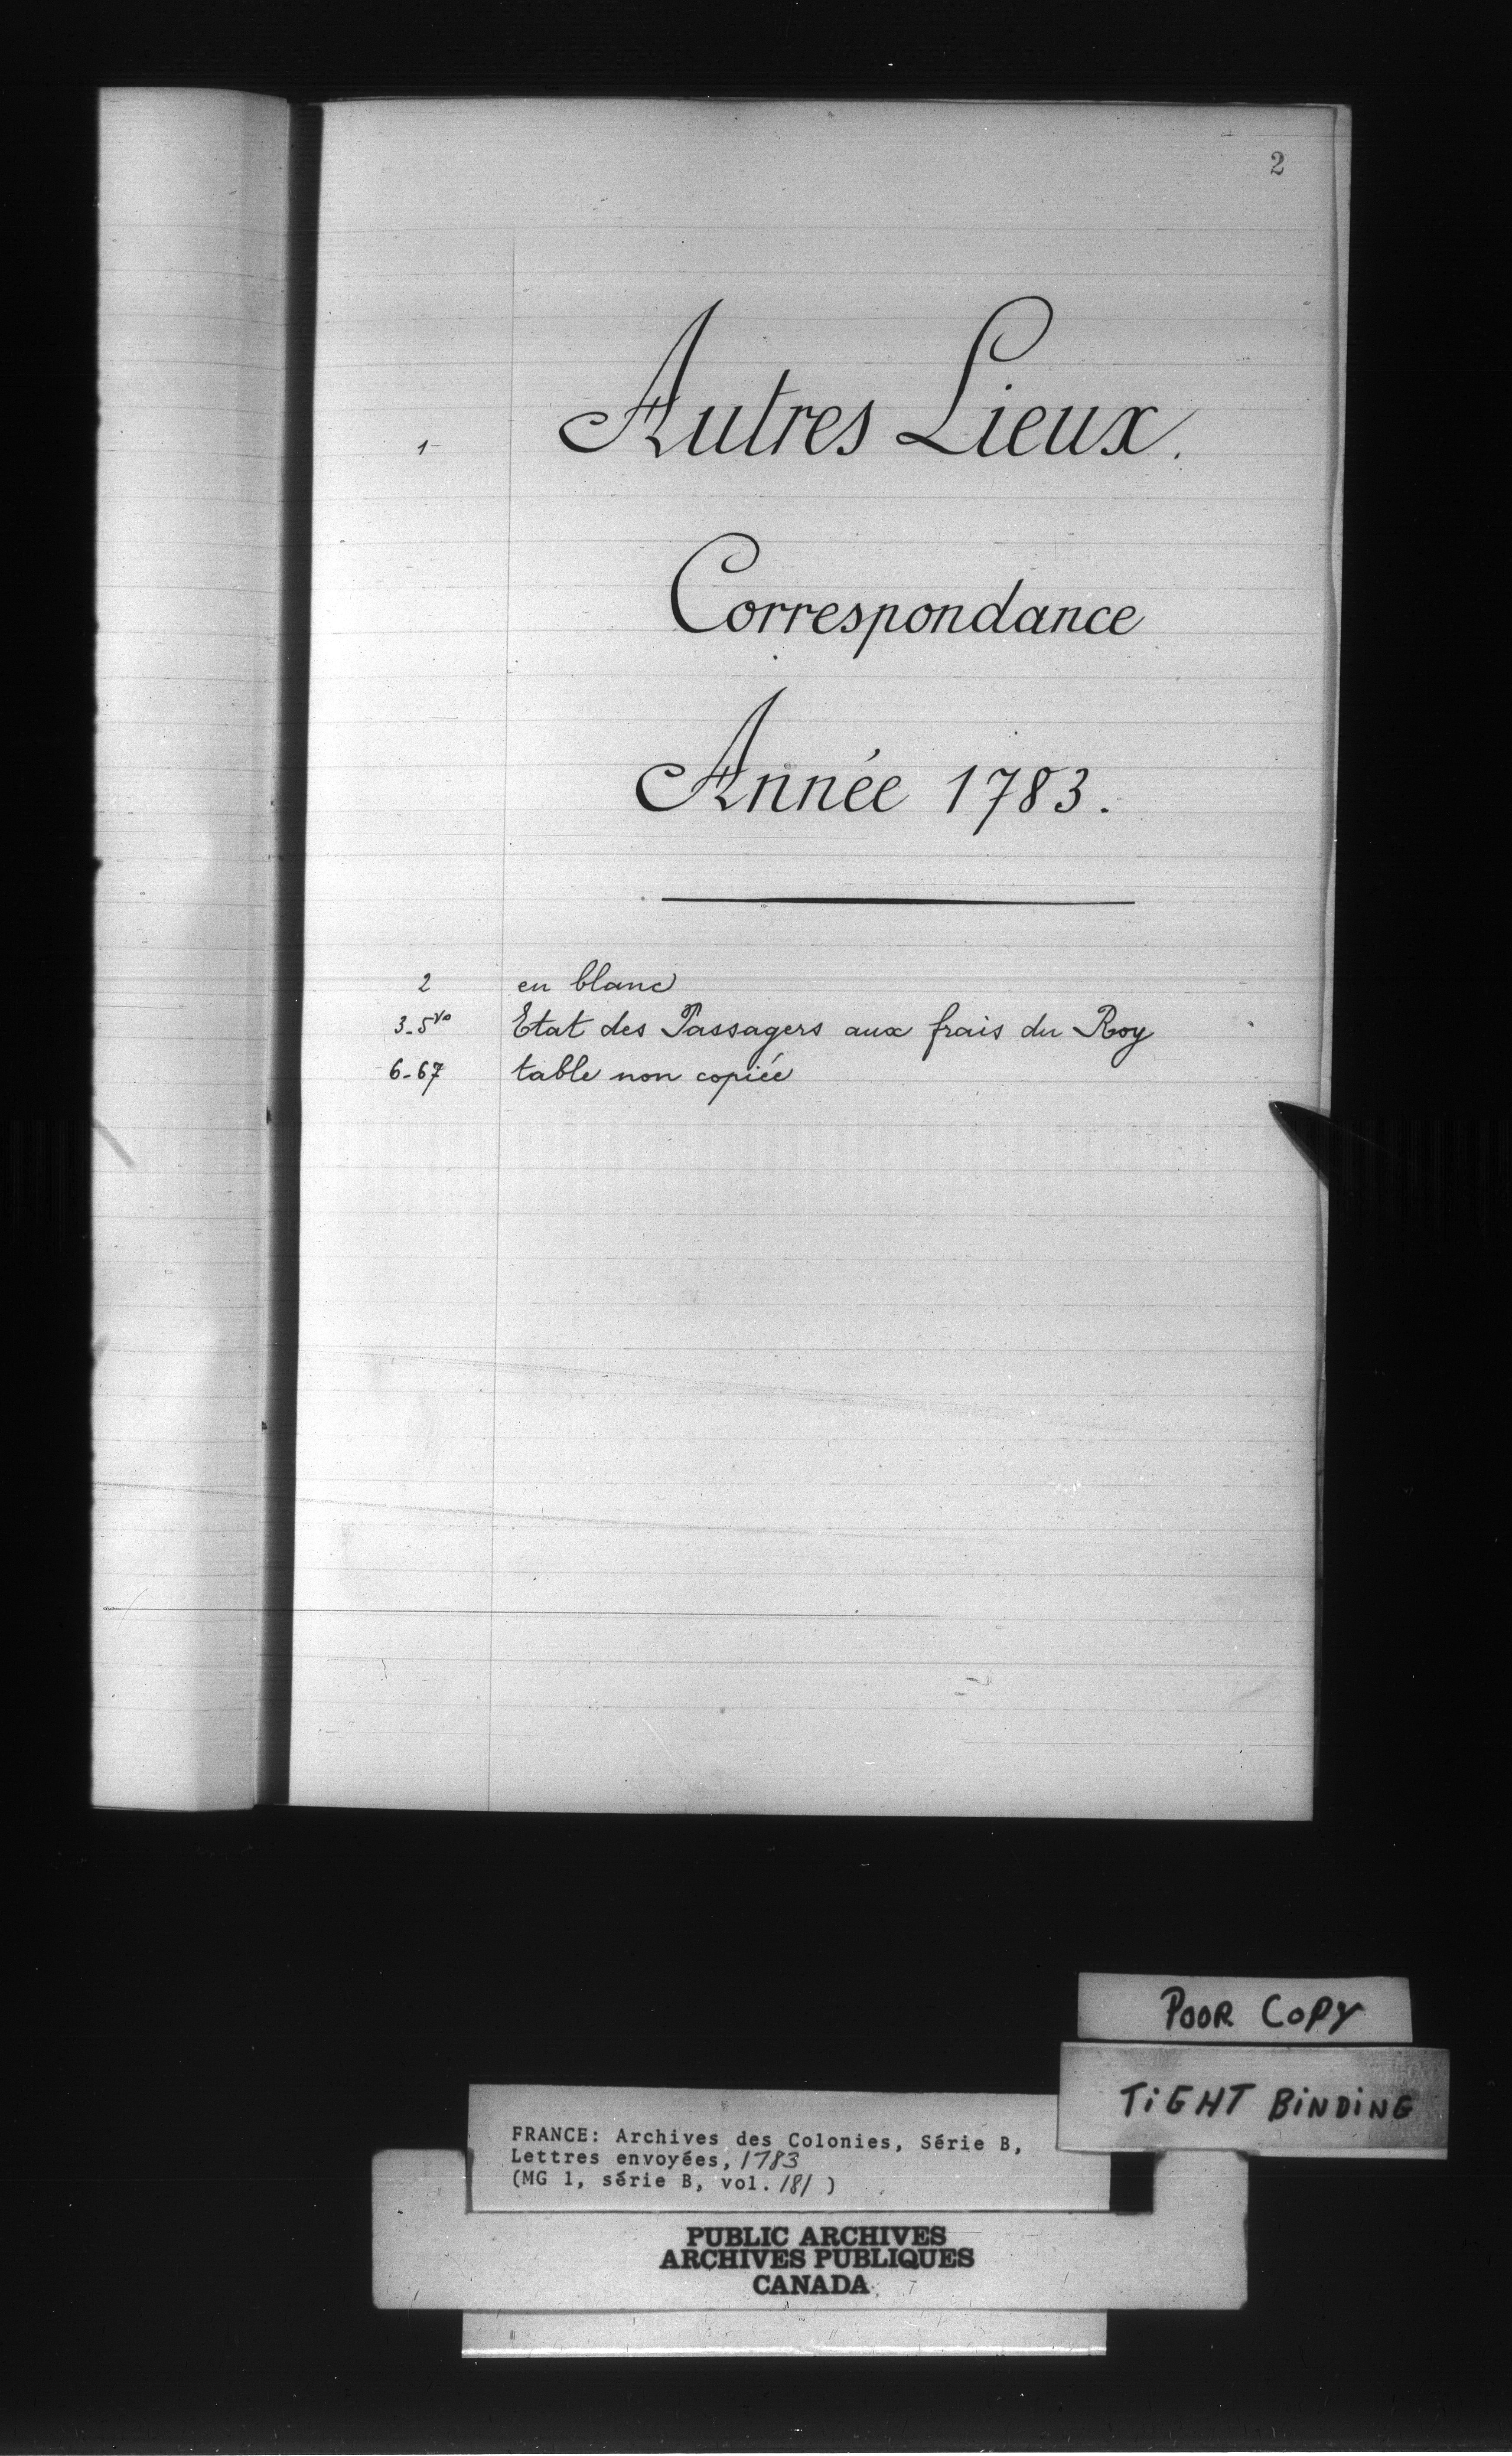 2
1 Autres Lieux.
Correspondance
Année 1783.
2 en blanc
3-5vo Etat des Passagers aux frais du Roy
6-67 table non copiée
POOR COPY
TIGHT BINDING
FRANCE: Archives des Colonies, Série B,
Lettres envoyées, 1783
(MG 1, série B, vol. 181 )
PUBLIC ARCHIVES
ARCHIVES PUBLIQUES
CANADA